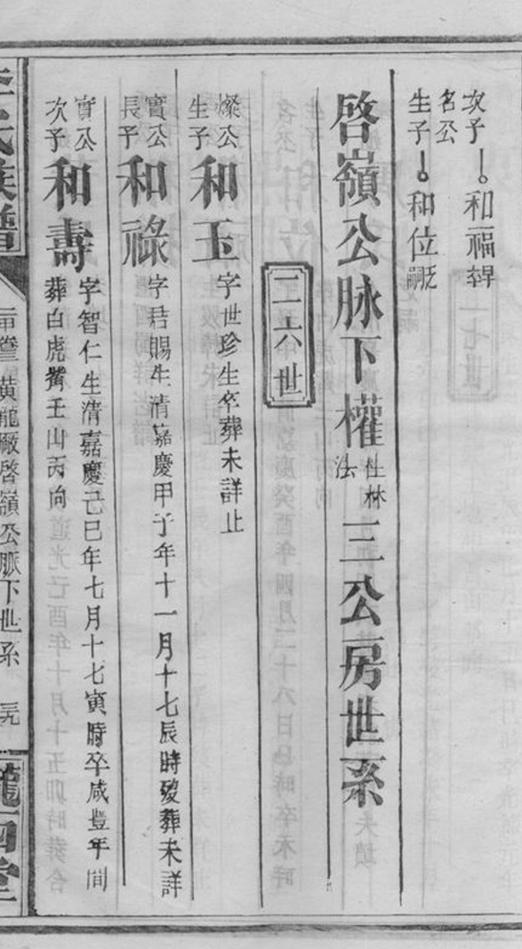 次子 和福
名公
生子 和位
啓嶺公脉下權桂林法三公房世系
二六世
燦公生子 和玉 字世珍生卒葬未詳止
實公長子 和祿 字君賜生清嘉慶甲子年十一月十七辰時歿葬未詳
實公次子 和壽 字智仁生清嘉慶己巳年七月十七寅時卒咸豊年間
葬白虎嘴壬山丙向
氏族譜
黃龍 啓嶺公脈下世系
隴西堂